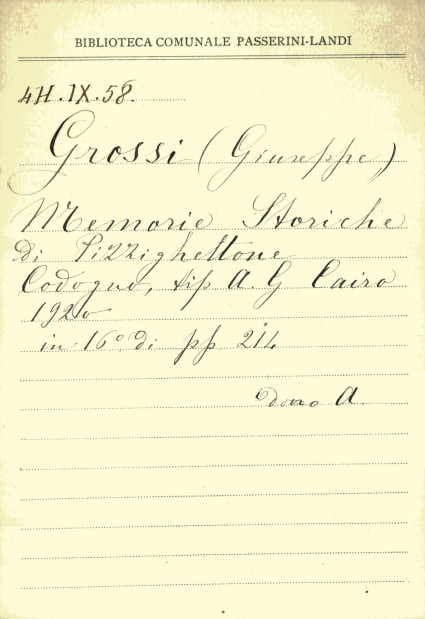 BIBLIOTECA COMUNALE PASSERINI-LANDI
4H.IX.58.
Grossi (Giuseppe)
Memorie Storiche
di Pizzighettone
Codogno, tip A. G Cairo
1920
in 16° di pp 214
Dono A.